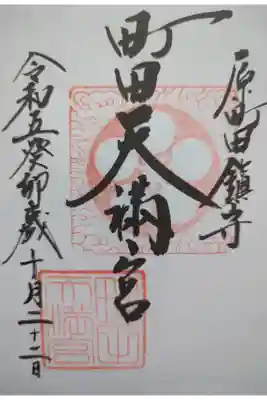 原町田鎮守
町田天満宮
令和五癸卯歳
十月二十二日